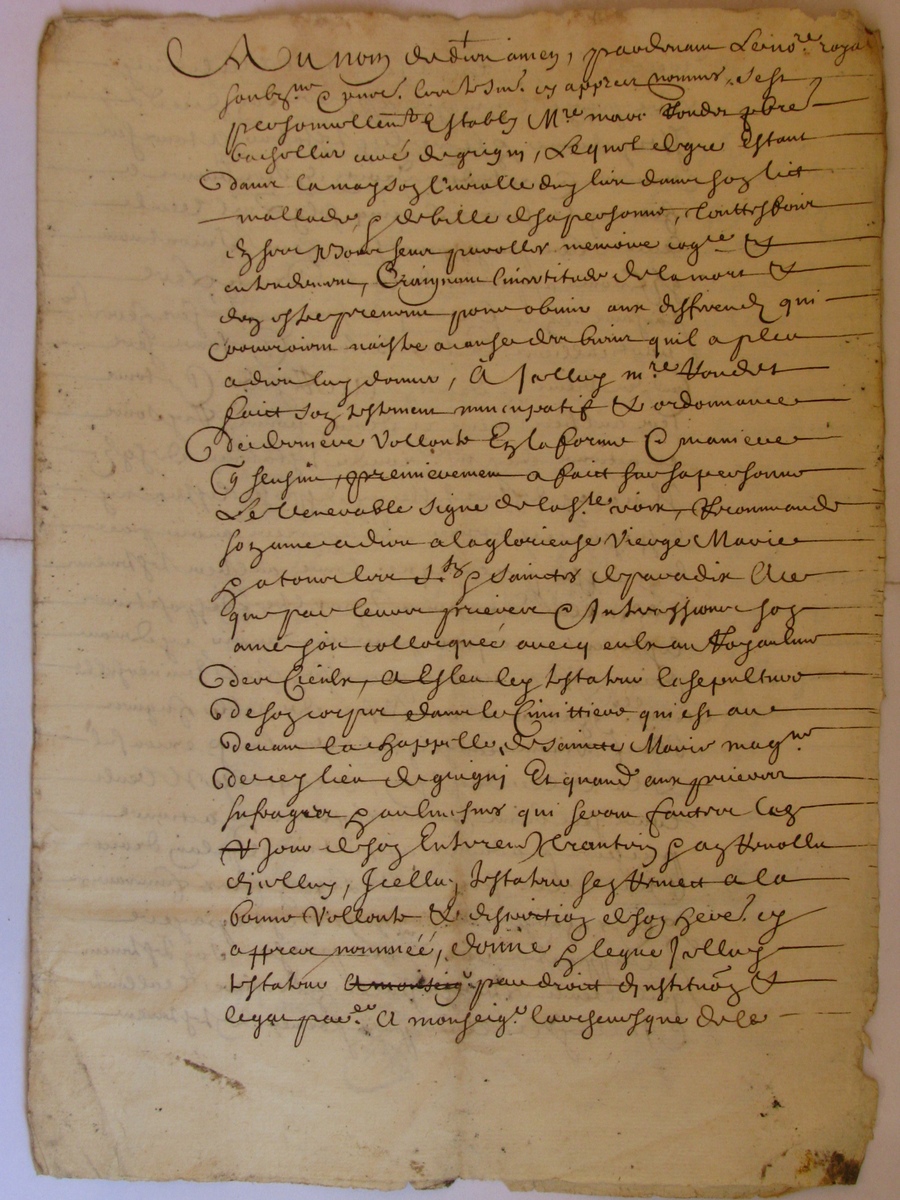 Au nom de dieu amen, pardevant le no.re royal
soubz.ne & pnce. des tesm. cy appres nommes, s'est
personnellem.t estably M.re marc Rondet pbre
bachellier curé de grigni, Lequel de gre estant
dans la mayson curialle du glieu dans son lict
mallade & debille de sa personne, touttesfois
en ses bons sens parolles memoire cog.ce &
entendement, Craignant l'incertitude de la mort &
den estre prevenu pour obvier aux differendz qui
pourroient naistre a cause des biens qu'il a pleu
a dieu luy donner, A Icelluy m.re Rondet
faict son testament nuncupatif & ordonnance
de derniere vollonte En la forme & maniere
q sensuit, premierement a faict sur sa personne
Le venerable signe de la s.te croix, Recommande
son ame a dieu a la glorieuse Vierge Marie
& a tous les s.ts & sainctes de paradis Ace
que par leurs prieres & Intercessions son
ame soit collocquée avecq eulx au Royaulme
des Cieulx, A Esleu ley testateur la sepulture
de son corps dans le Cimittiere qui est au
devant la chappelle de saincte Marie magne
de ce glieu de grigni Et quand aux prieres
sufrages & aulmosnes qui seront faictes Les
jour de son Enterem.t crantein & an Revollu
dicelluy, Icelluy testateur sen Remect a la
bonne Vollonte & discretion de son here. cy
appres nommée, donne & legue Icelluy
testateur a monseig.r par droict dinstituon &
legat par.er A monseig.r larchevesque de le